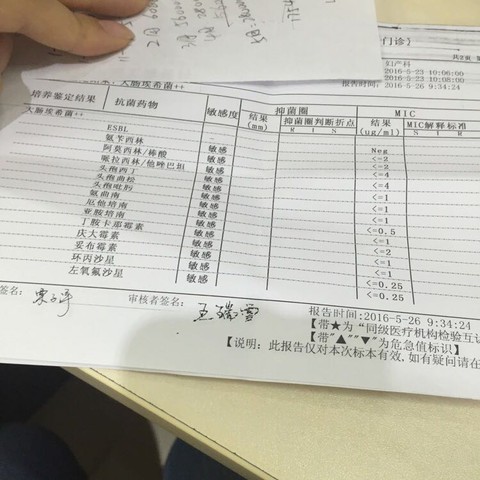 门诊)
妇产科
2016-5-23 10:06:00
2016-5-23 10:08:00
报告时间: 2016-5-26 9:34:24
大肠埃希菌++
培养鉴定结果 抗菌药物 敏感度 抑菌圈 MIC
结果(mm) 抑菌圈判断折点 结果(ug/ml) MIC解释标准
R I S S I R
大肠埃希菌++
ESBL Neg
氨苄西林 敏感 <=2
阿莫西林/棒酸 敏感 <=2
哌拉西林/他唑巴坦 敏感 <=4
头孢西丁 敏感 <=4
头孢曲松 敏感 <=1
头孢吡肟 敏感 <=1
氨曲南 敏感 <=1
厄他培南 敏感 <=0.5
亚胺培南 敏感 <=1
丁胺卡那霉素 敏感 <=2
庆大霉素 敏感 <=1
妥布霉素 敏感 <=1
环丙沙星 敏感 <=0.25
左氧氟沙星 敏感 <=0.25
签名: 审核者签名: 王瑞雪
报告时间:2016-5-26 9:34:24
【带★为“同级医疗机构检验互认
【带"▲""▼"为危急值标识】
【说明: 此报告仅对本次标本有效, 如有疑问请在